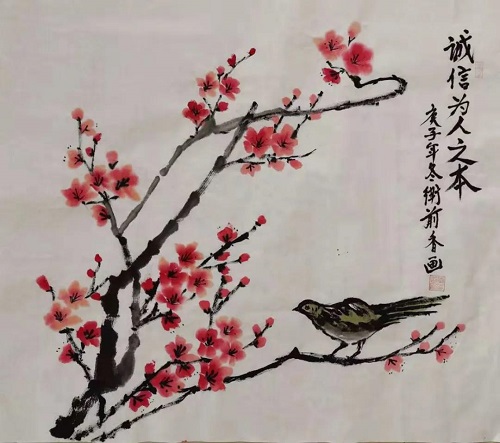 诚信为人之本
庚子年冬衛前香画